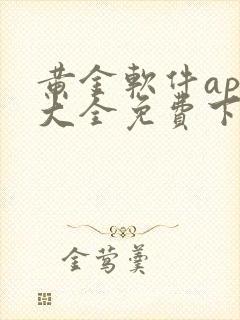 黄金軟件ap
大全免費下
金莺羹